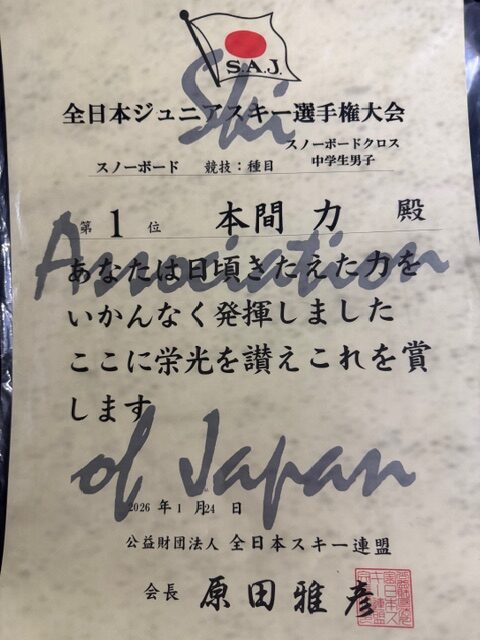 S.A.J.
全日本ジュニアスキー選手権大会
スノーボード 競技:種目 スノーボードクロス
中学生男子
第 1 位 本間 力 殿
あなたは日頃きたえた力を
いかんなく発揮しました
ここに栄光を讃えこれを賞
します
Ski
Association
of Japan
2026 年 1 月 24 日
公益財団法人 全日本スキー連盟
会長 原田雅彦